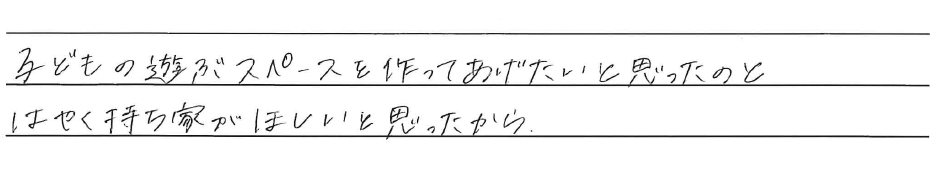 子どもの遊ぶスペースを作ってあげたいと思ったのと
はやく持ち家がほしいと思ったから.